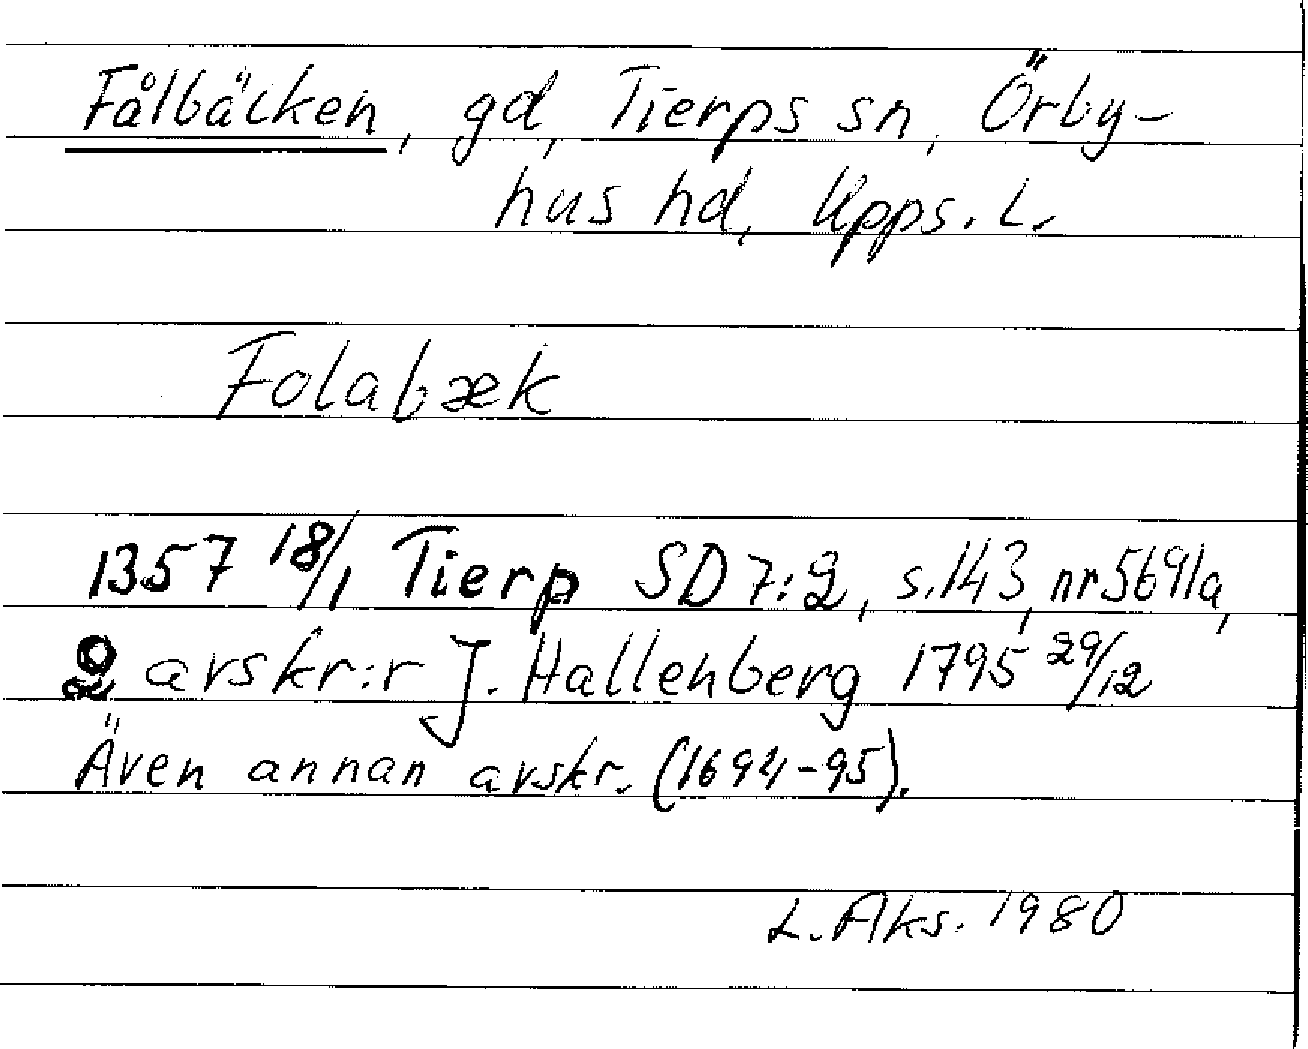 Fålbäcken, gd, Tierps sn, Örby-
hus hd, Upps. L.
Folabæk
1357 18/1 Tierp SD 7:2, s. 143, nr 5691a,
2 avskr:r J. Hallenberg 1795 29/12
Även annan avskr. (1694-95).
L. Aks. 1980